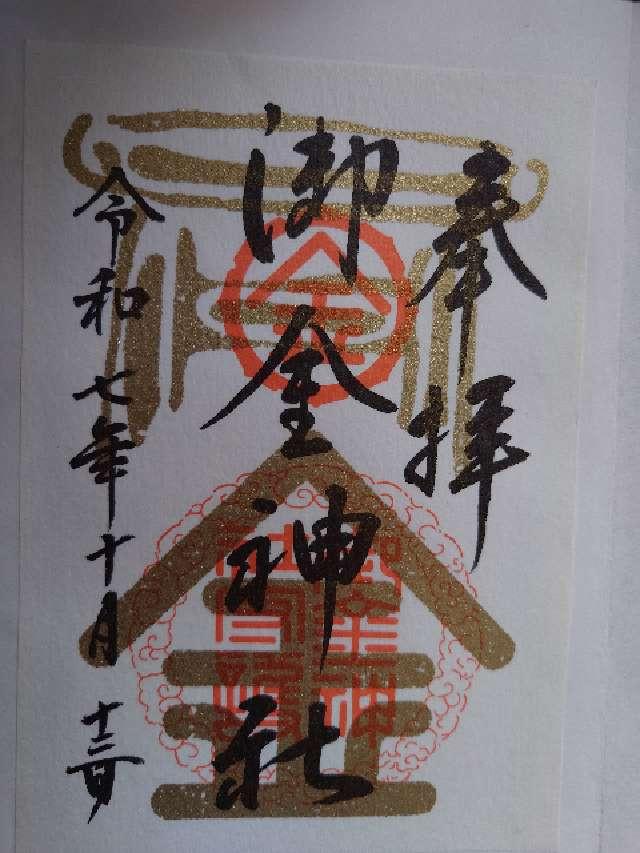 奉拝
御金神社
令和七年十月十三日
金
金